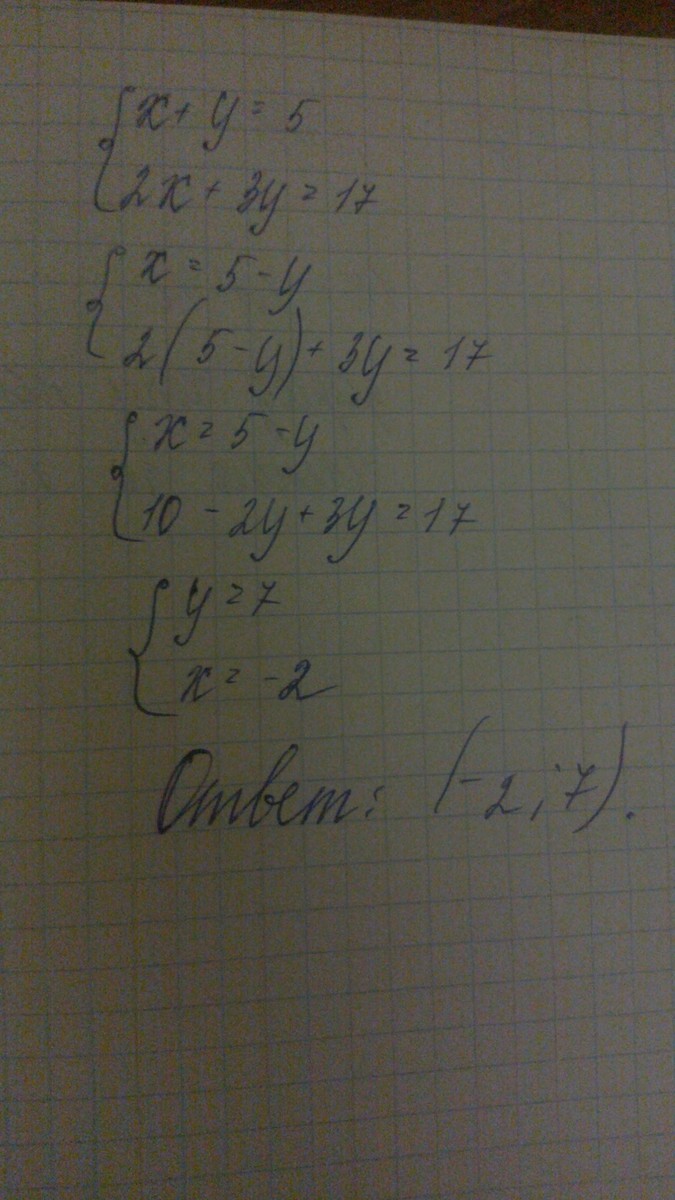 {x + y = 5
{2x + 3y = 17
{x = 5 - y
{2(5 - y) + 3y = 17
{x = 5 - y
{10 - 2y + 3y = 17
{y = 7
{x = -2
Ответ: (-2; 7).